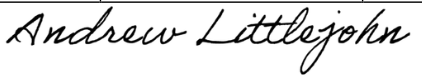 Andrew Littlejohn